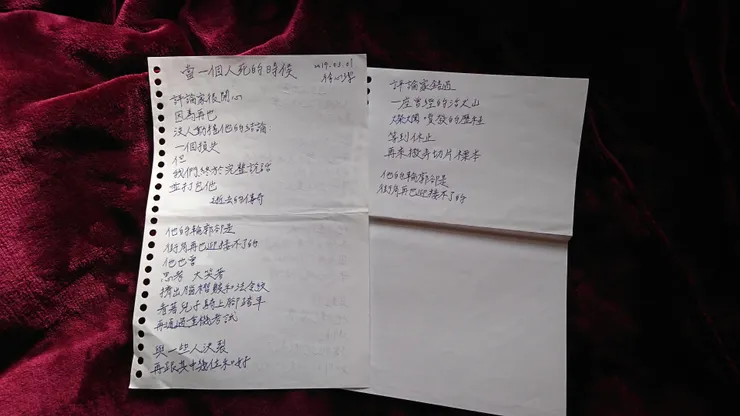 當一個人死的時候
2019.03.01
評論家很開心
因為再也
沒人動搖他的結論:
一個損失
但
我們終於完整說話
並打包他
逝去的傳奇
他的輪廓卻是
街角再也迎接不了的
他也曾
思考 大笑著
擠出腦 和法令紋
看著兒子騎上腳踏車
再通過 考試
與一些人決裂
再跟其中幾位和好
評論家錯過
一座曾經的活火山
燦爛噴發的歷程
等到休止
再來撥弄切片標本
他的輪廓卻是
街角再也迎接不了的